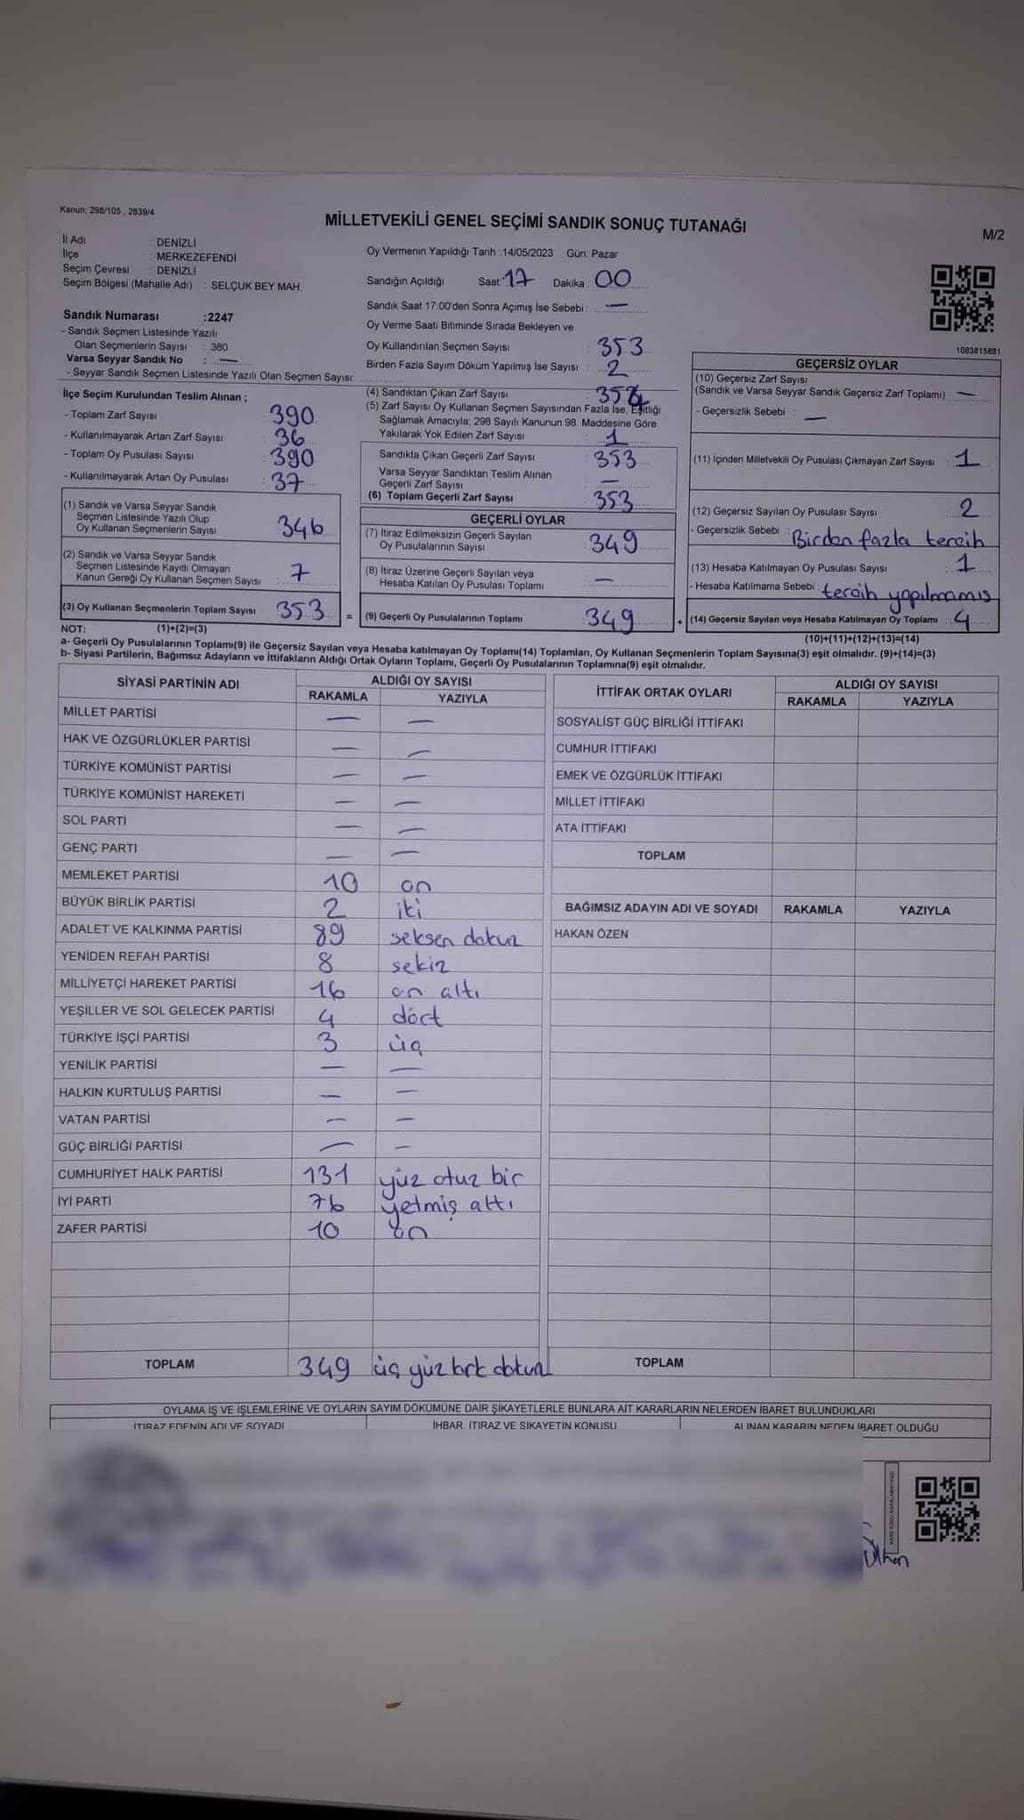 Kanun: 298/105 , 2839/4
MİLLETVEKİLİ GENEL SEÇİMİ SANDIK SONUÇ TUTANAĞI
M/2
İl Adı : DENİZLİ
İlçe : MERKEZEFENDİ
Seçim Çevresi : DENİZLİ
Seçim Bölgesi (Mahalle Adı) : SELÇUK BEY MAH.
Oy Vermenin Yapıldığı Tarih :14/05/2023 Gün: Pazar
Sandığın Açıldığı Saat: 17 Dakika 00
Sandık Saat 17:00'den Sonra Açımış İse Sebebi : —
Oy Verme Saati Bitiminde Sırada Bekleyen ve
Oy Kullandırılan Seçmen Sayısı : 353
Birden Fazla Sayım Döküm Yapılmış İse Sayısı : 2
1083815681
Sandık Numarası :2247
- Sandık Seçmen Listesinde Yazılı
Olan Seçmenlerin Sayısı : 380
Varsa Seyyar Sandık No : —
- Seyyar Sandık Seçmen Listesinde Yazılı Olan Seçmen Sayısı:
İlçe Seçim Kurulundan Teslim Alınan ;
- Toplam Zarf Sayısı : 390
- Kullanılmayarak Artan Zarf Sayısı : 36
- Toplam Oy Pusulası Sayısı : 390
- Kullanılmayarak Artan Oy Pusulası : 37
(1) Sandık ve Varsa Seyyar Sandık
Seçmen Listesinde Yazılı Olup
Oy Kullanan Seçmenlerin Sayısı : 346
(2) Sandık ve Varsa Seyyar Sandık
Seçmen Listesinde Kayıtlı Olmayan
Kanun Gereği Oy Kullanan Seçmen Sayısı : 7
(3) Oy Kullanan Seçmenlerin Toplam Sayısı : 353 =
(4) Sandıktan Çıkan Zarf Sayısı : 354
(5) Zarf Sayısı Oy Kullanan Seçmen Sayısından Fazla İse, Eşitliği
Sağlamak Amacıyla; 298 Sayılı Kanunun 98. Maddesine Göre
Yakılarak Yok Edilen Zarf Sayısı : 1
Sandıkta Çıkan Geçerli Zarf Sayısı : 353
Varsa Seyyar Sandıktan Teslim Alınan
Geçerli Zarf Sayısı : —
(6) Toplam Geçerli Zarf Sayısı : 353
GEÇERLİ OYLAR
(7) İtiraz Edilmeksizin Geçerli Sayılan
Oy Pusulalarının Sayısı : 349
(8) İtiraz Üzerine Geçerli Sayılan veya
Hesaba Katılan Oy Pusulası Toplamı : —
(9) Geçerli Oy Pusulalarının Toplamı : 349 +
GEÇERSİZ OYLAR
(10) Geçersiz Zarf Sayısı
(Sandık ve Varsa Seyyar Sandık Geçersiz Zarf Toplamı) : —
- Geçersizlik Sebebi : —
(11) İçinden Milletvekili Oy Pusulası Çıkmayan Zarf Sayısı : 1
(12) Geçersiz Sayılan Oy Pusulası Sayısı : 2
- Geçersizlik Sebebi : Birden fazla tercih
(13) Hesaba Katılmayan Oy Pusulası Sayısı : 1
- Hesaba Katılmama Sebebi : tercih yapılmamış
(14) Geçersiz Sayılan veya Hesaba Katılmayan Oy Toplamı : 4
NOT: (1)+(2)=(3)
(10)+(11)+(12)+(13)=(14)
a- Geçerli Oy Pusulalarının Toplamı(9) ile Geçersiz Sayılan veya Hesaba katılmayan Oy Toplamı(14) Toplamları, Oy Kullanan Seçmenlerin Toplam Sayısına(3) eşit olmalıdır. (9)+(14)=(3)
b- Siyasi Partilerin, Bağımsız Adayların ve İttifakların Aldığı Ortak Oyların Toplamı, Geçerli Oy Pusulalarının Toplamına(9) eşit olmalıdır.
SİYASİ PARTİNİN ADI ALDIĞI OY SAYISI
RAKAMLA YAZIYLA
MİLLET PARTİSİ — —
HAK VE ÖZGÜRLÜKLER PARTİSİ — —
TÜRKİYE KOMÜNİST PARTİSİ — —
TÜRKİYE KOMÜNİST HAREKETİ — —
SOL PARTİ — —
GENÇ PARTİ — —
MEMLEKET PARTİSİ 10 on
BÜYÜK BİRLİK PARTİSİ 2 iki
ADALET VE KALKINMA PARTİSİ 89 seksen dokuz
YENİDEN REFAH PARTİSİ 8 sekiz
MİLLİYETÇİ HAREKET PARTİSİ 16 on altı
YEŞİLLER VE SOL GELECEK PARTİSİ 4 dört
TÜRKİYE İŞÇİ PARTİSİ 3 üç
YENİLİK PARTİSİ — —
HALKIN KURTULUŞ PARTİSİ — —
VATAN PARTİSİ — —
GÜÇ BİRLİĞİ PARTİSİ — —
CUMHURİYET HALK PARTİSİ 131 yüz otuz bir
İYİ PARTİ 76 yetmiş altı
ZAFER PARTİSİ 10 on
TOPLAM 349 üç yüz kırk dokuz
İTTİFAK ORTAK OYLARI ALDIĞI OY SAYISI
RAKAMLA YAZIYLA
SOSYALİST GÜÇ BİRLİĞİ İTTİFAKI
CUMHUR İTTİFAKI
EMEK VE ÖZGÜRLÜK İTTİFAKI
MİLLET İTTİFAKI
ATA İTTİFAKI
TOPLAM
BAĞIMSIZ ADAYIN ADI VE SOYADI RAKAMLA YAZIYLA
HAKAN ÖZEN
TOPLAM
OYLAMA İŞ VE İŞLEMLERİNE VE OYLARIN SAYIM DÖKÜMÜNE DAİR ŞİKAYETLERLE BUNLARA AİT KARARLARIN NELERDEN İBARET BULUNDUKLARI
İTİRAZ EDENİN ADI VE SOYADI İHBAR, İTİRAZ VE ŞİKAYETİN KONUSU ALINAN KARARIN NEDEN İBARET OLDUĞU